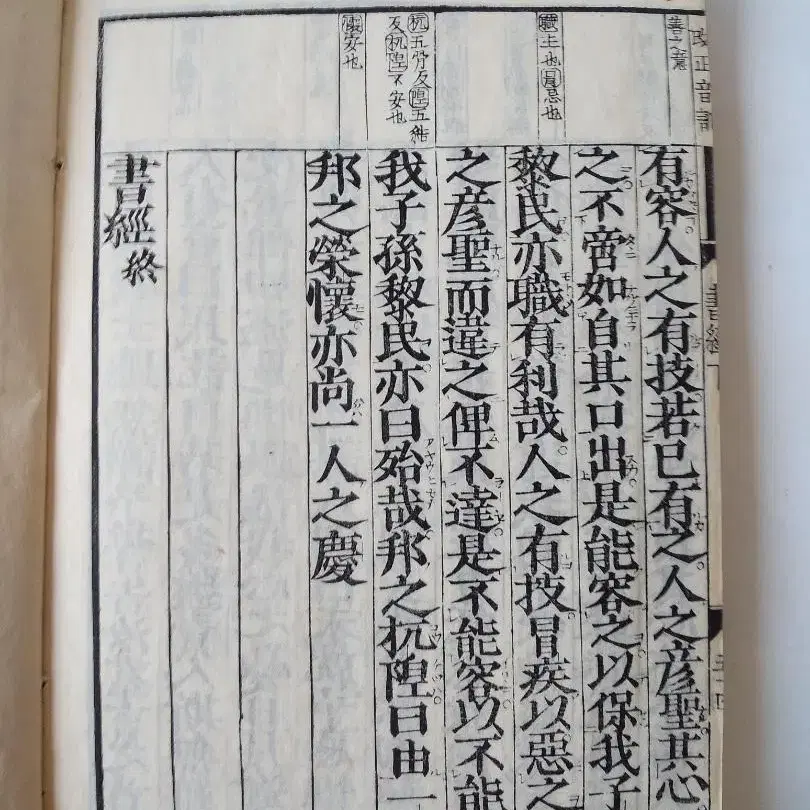 改正音訓
職主也冒忌也
杌五骨反隉五結
反杌隉不安也
懷安也
有容人之有技若已有之人之彦聖其心
之不啻如自其口出是能容之以保我子
黎民亦職有利哉人之有技冒疾以惡之
之彦聖而違之俾不達是不能容以不能
我子孫黎民亦曰殆哉邦之杌隉曰由一
邦之榮懷亦尚一人之慶
書經終